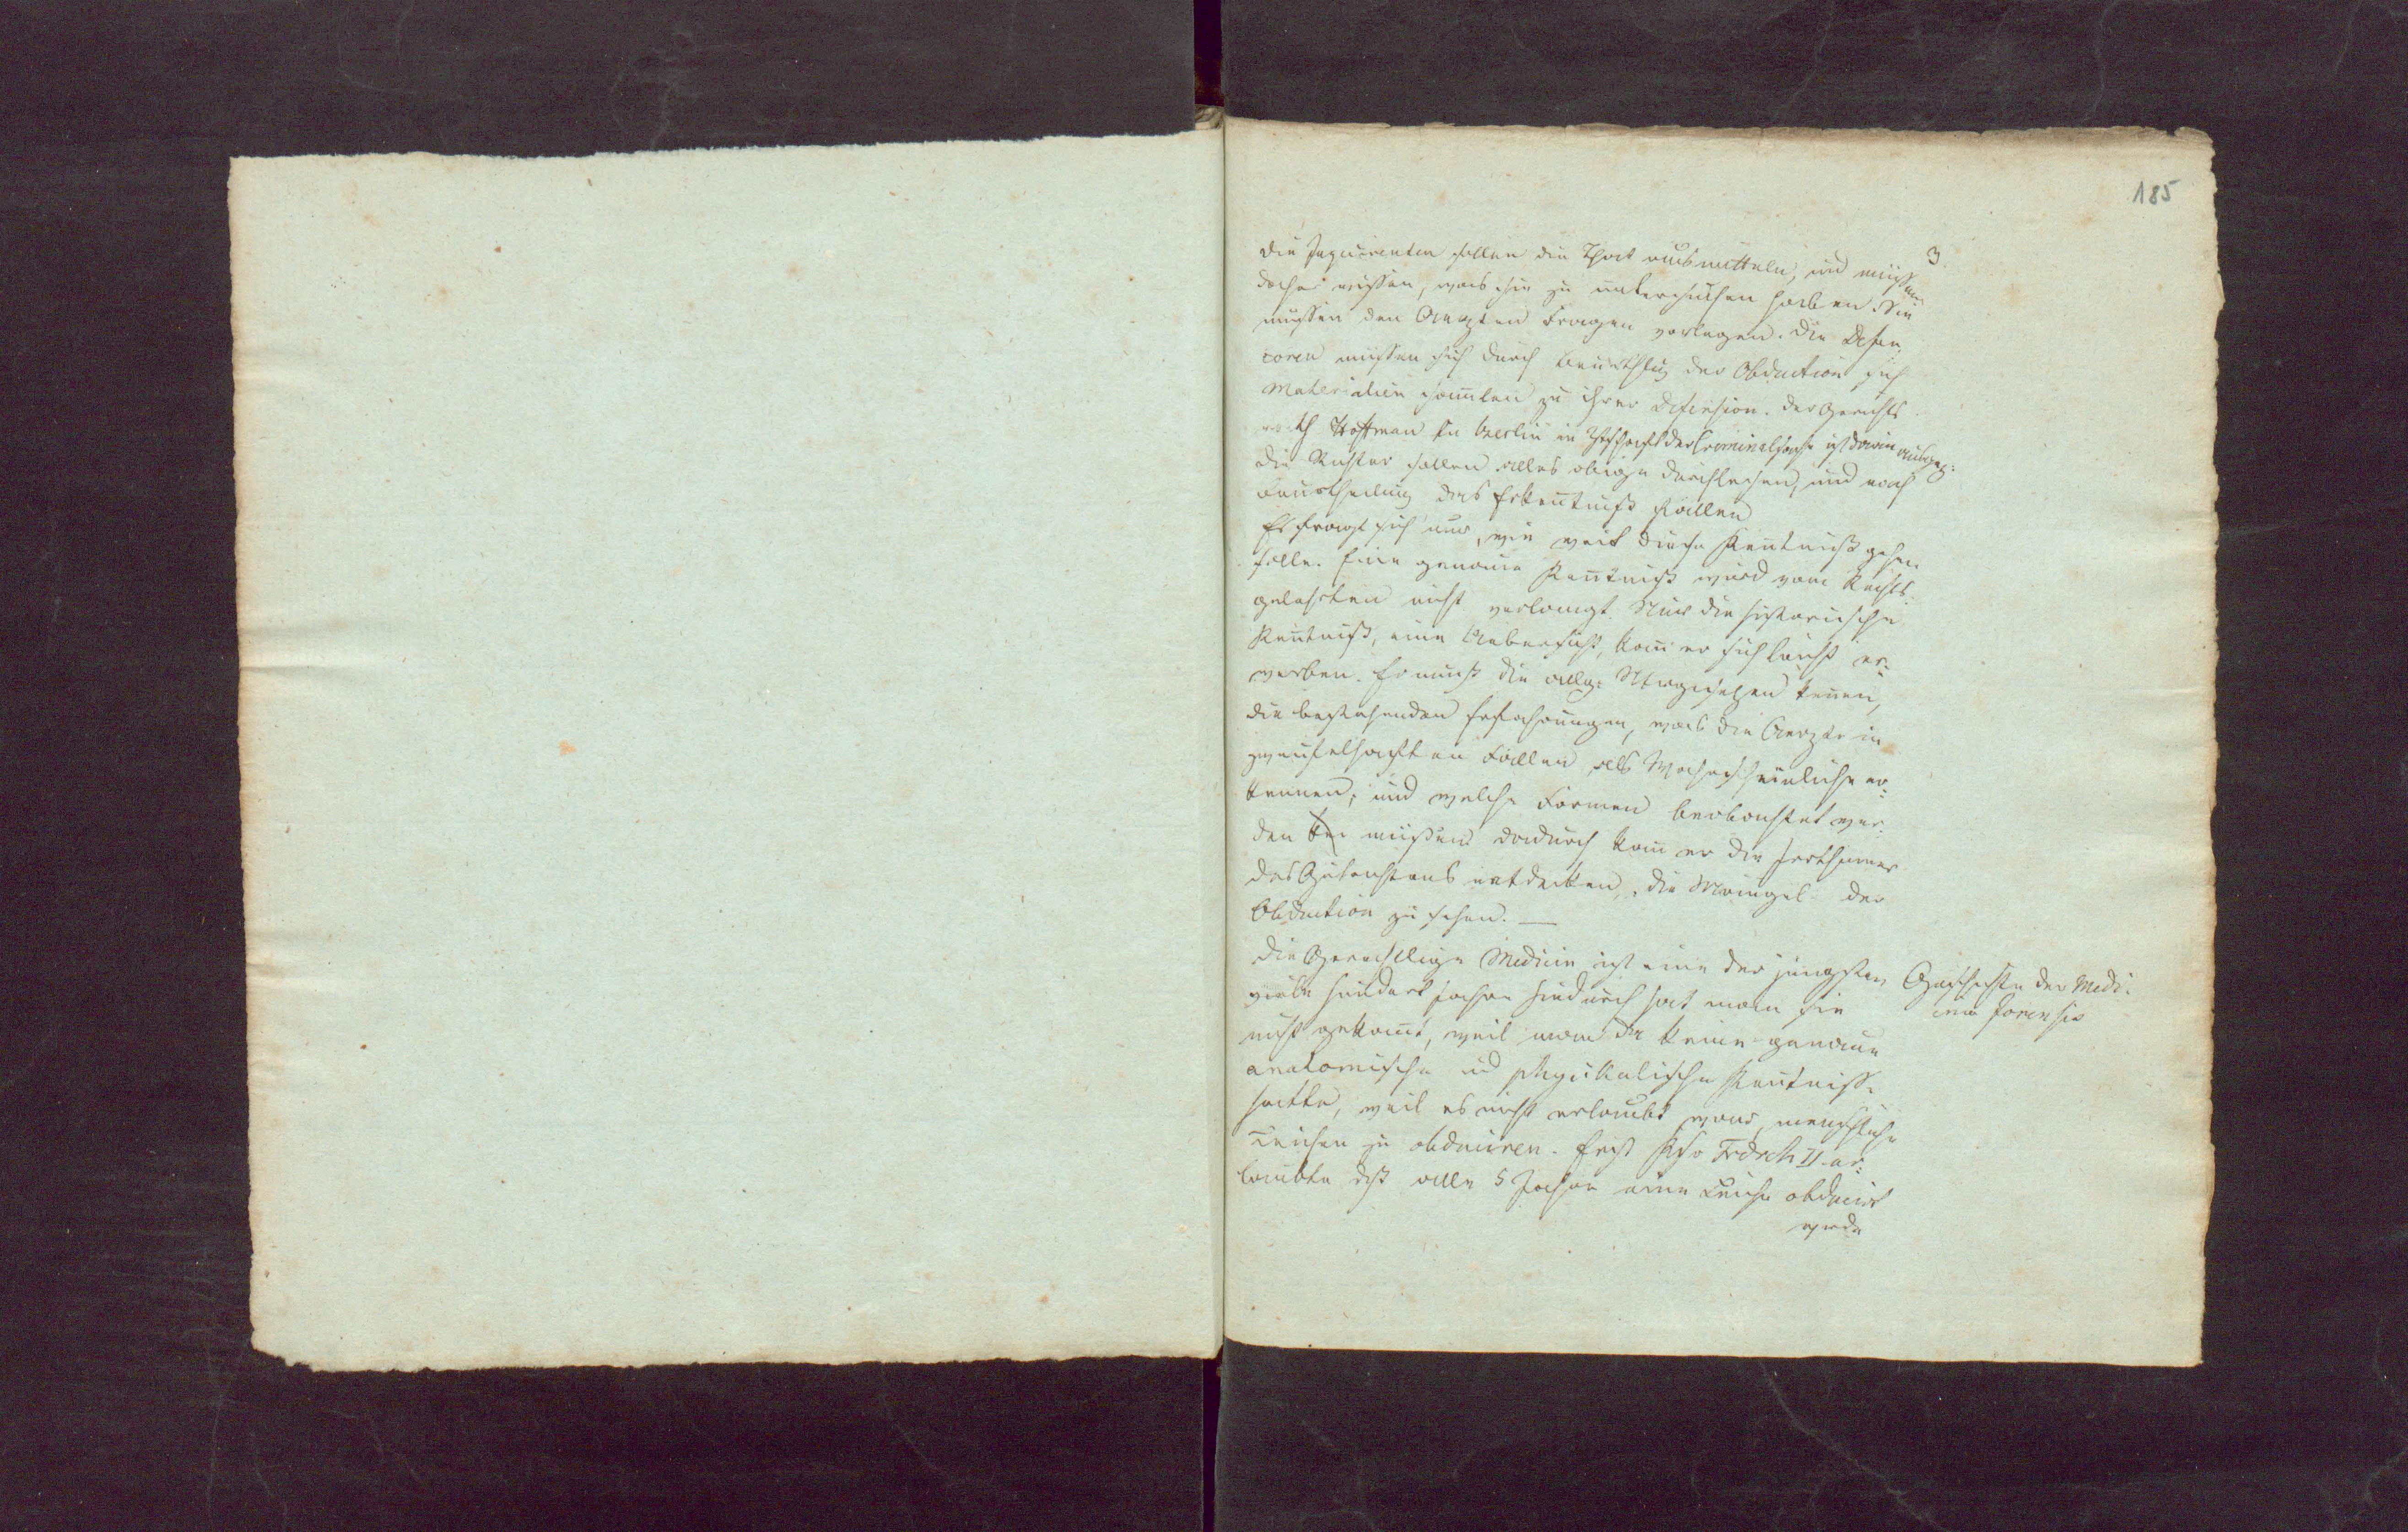 185
3
die Inquirenten sollen die That ausmitteln, und müssen
daher wissen, was sie zu untersuchen haben. Sie
müssen den Aerzten Fragen vorlegen. Die Defen
soren müssen sich durch der Obduction sich
Materialien sammlen zu ihrer Defension. der Gerichts
rath Hoffman in Berlin in der Criminal ist darin
die Richter sollen alles obige durchsehen, und nach
Beurtheilung das Erkentniß fällen
Es fragt sich nur, wie weit diese Kentniß gehen
solle. Eine genaue Kentniß wird vom Rechts
gelehrten nicht verlangt. Nur die historische
Kentniß, eine Uebersicht, kan er sich leicht er¬
werben. Er muß die allg: kennen,
die bestehenden Erfahrungen, was die Aerzte in
zweifelhaften Fällen als Wahrscheinliche er¬
kennen, und welche Formen beobachtet wer¬
den müssen dadurch kan er die Irrthümer
des Gutachtens entdecken, die Mängel der
Obduction zu sehen. —
Die Gerichtliche Medicin ist eine der jüngsten
viele hundert Jahre hindurch hat man sie
nicht gekant, weil man keine genaue
anatomische und physikalische Kentniß
hatte, weil es nicht erlaubt war, menschliche
Leichen zu obduciren. Erst Ksr Fedrch II er¬
laubte daß alle 5 Jahre eine Leiche obducirt
werde
Geschichte der Medi¬
cina forensis